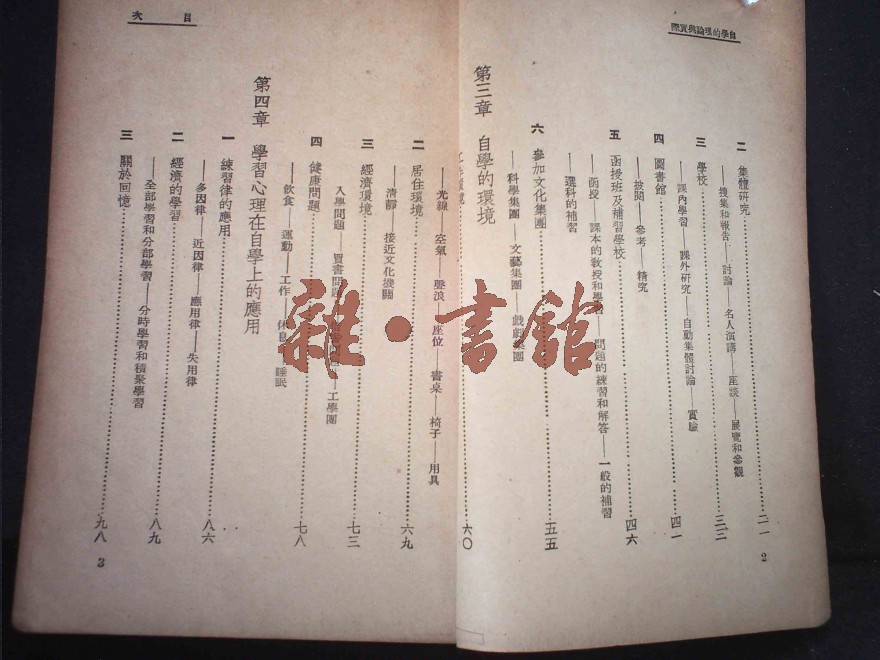 自學的理論與實際
二 集體研究……二一
——搜集和報告——討論——名人演講——座談——展覽和參觀
三 學校……三三
——課內學習——課外研究——自動集體討論——實驗
四 圖書館……四一
——披閱——參考——精究
五 函授班及補習學校……四六
——函授——課本的教授和學習——問題的練習和解答——一般的補習
——選科的補習
六 參加文化集團……五五
——科學集團——文藝集團——戲劇集團
第三章 自學的環境
2
目 次
工作環境……六〇
——光線——空氣——聲浪——座位——書桌——椅子——用具
二 居住環境……六九
——清靜——接近文化機關
三 經濟環境……七三
入學問題——買書問題
工學團
四 健康問題……七八
——飲食——運動——工作——休息——睡眠
第四章 學習心理在自學上的應用
一 練習律的應用……八六
——多因律——近因律——應用律——失用律
二 經濟的學習……八九
——全部學習和分部學習——分時學習和積聚學習
三 關於回憶……九八
3
雜·書館